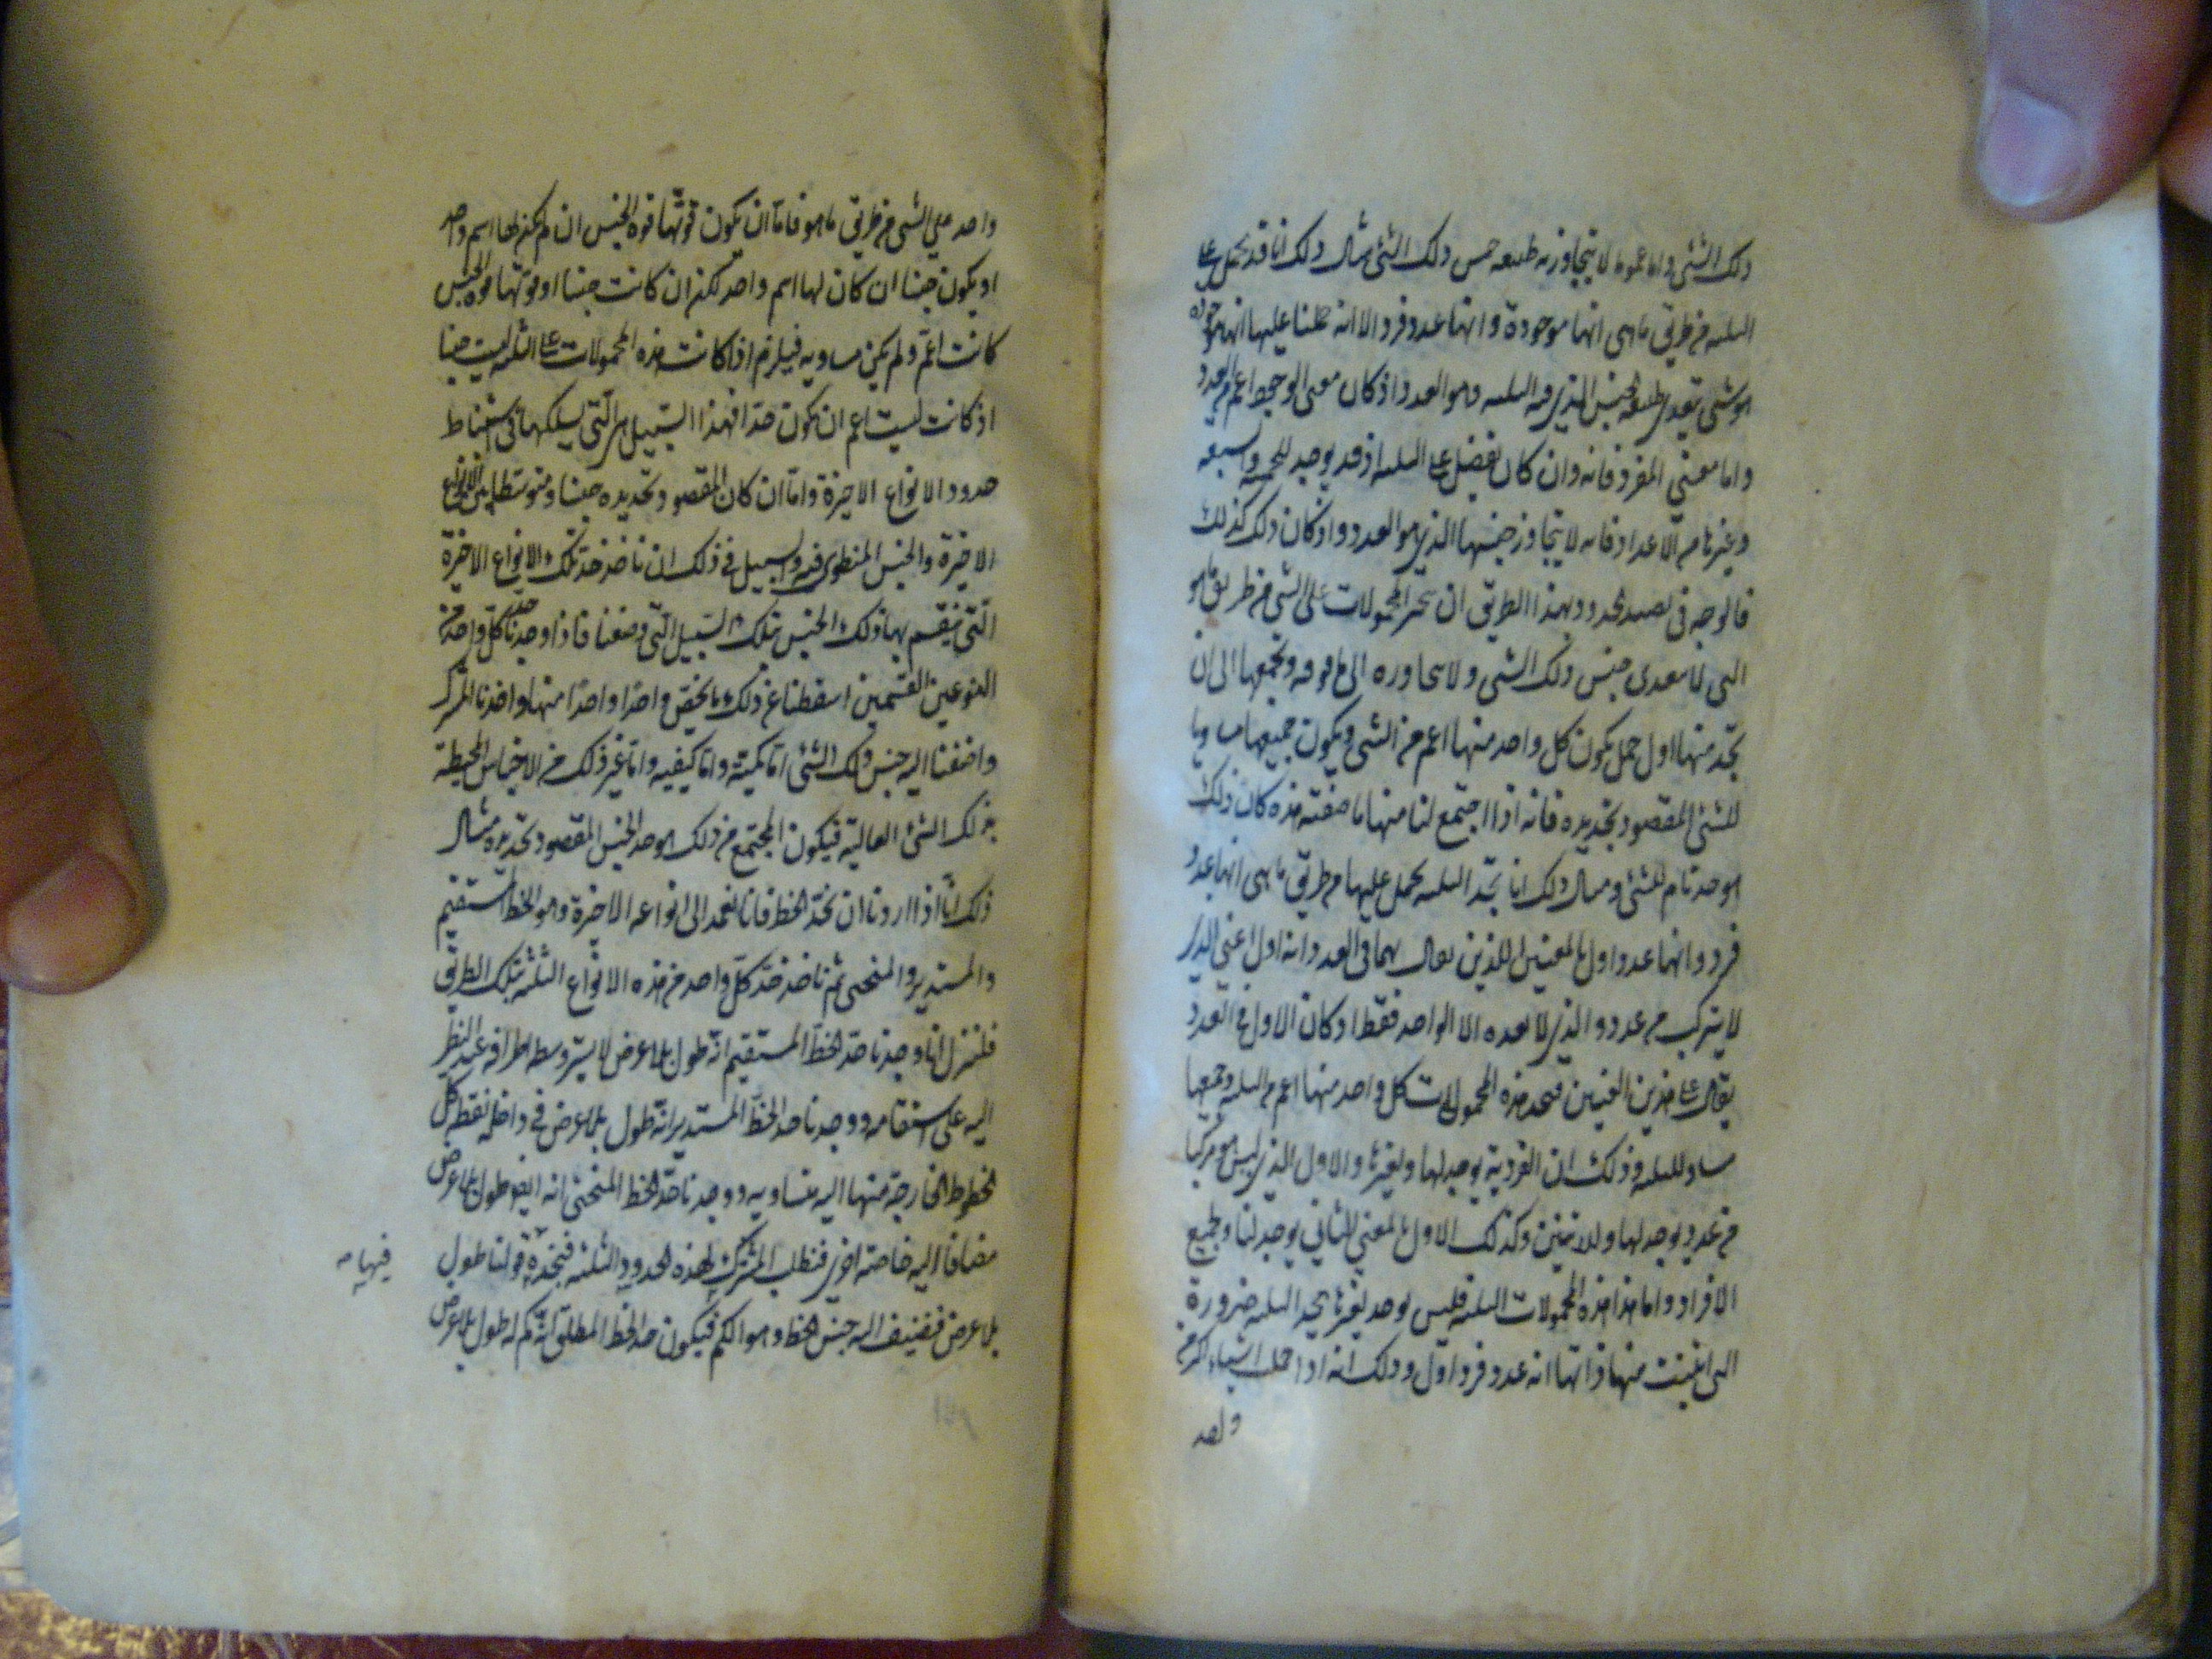 ذلك الشئ واما عموما لا يتجاوز به طبيعه جنس ذلك الشئ مثال ذلك انا قد نحمل على
الثلثه من طريق ماهى انها موجودة وانها عدد فرد الا انه حملنا عليها انها موجوده
هو شئ يتعدى طبيعه الجنس الذى فيه الثلثه وهو العدد اذ كان معنى الوجود اعم من العدد
واما معنى الفرد فانه وان كان يفضل على الثلثه اذ قد يوجد للخمسه والسبعه
وغيرها من الاعداد فانه لا يتجاوز جنسها الذى هو العدد واذ كان ذلك كذلك
فالوجه فى تصيد الحدود بهذا الطريق ان نتحرى المحمولات على الشئ من طريق ماهو
التى لا تتعدى جنس ذلك الشى ولا تتجاوزه الى ما فوقه ونجمعها الى ان
نجد منها اول حمل يكون كل واحد منها اعم من الشى ويكون جميعها مساويا
للشئ المقصود تحديده فانه اذا اجتمع لنا منها ما صفته هذه كان ذلك
هو حد تام للشئ ومثال ذلك انا نجد الثلثه يحمل عليها من طريق ماهى انها عدد
فرد وانها عدد اول بالمعنيين اللذين يقال بهما فى العدد انه اول اعنى الذى
لا يتركب من عدد والذى لا يعده الا الواحد فقط اذ كان الاول فى العدد
يقال على هذين المعنيين فنجد هذه المحمولات كل واحد منها اعم من الثلثه وجميعها
مساو للثلثه وذلك ان الفردية يوجد لها ولغيرها والاول الذى ليس هو مركبا
من عدد يوجد لها وللاثنين وكذلك الاول بالمعنى الثانى يوجد لنا ولجميع
الافراد واما هذا هذه المحمولات الثلثه فليس يوجد لغيرها فحد الثلثه ضرورة
التى انبنت منها ذاتها انه عدد فرد اول وذلك انه اذا حمل اشياء اكثر من
واحد
واحد على الشئ من طريق ماهو فاما ان يكون قوتها قوه الجنس ان لم يكن لها اسم واحد
او يكون جنسا ان كان لها اسم واحد لكن ان كانت جنسا او قوتها قوه الجنس
كانت اعم ولم يكن مساويه فيلزم اذا كانت هذه المحمولات على الثلثه ليست جنسا
اذ كانت ليست اعم ان يكون حدا فهذا السبيل هى التى يسلكها فى استنباط
حدود الانواع الاخيرة واما ان كان المقصود تحديده جنسا متوسطا بين الانواع
الاخيرة والجنس المنطوى فيه فالسبيل فى ذلك ان ناخذ حد تلك الانواع الاخيرة
التى ينقسم بها ذلك الجنس بتلك السبيل التى وصفنا فاذا وجدنا حد كل واحد من
النوعين القسمين اسقطنا عن ذلك ما يخص واحدا واحدا منها واخذنا المشترك
واضفنا اليه جنس ذلك الشئ اما كمية واما كيفيه واما غير ذلك من الاجناس المحيطة
بذلك الشئ العالية فيكون المجتمع من ذلك هو حد الجنس المقصود تحديده مثال
ذلك انا اذا اردنا ان نحد الخط فانا نعمد الى انواعه الاخيرة وهو الخط المستقيم
والمستدير والمنحنى ثم ناخذ حد كل واحد من هذه الانواع الثلثه بتلك الطريق
فلننزل انا وجدنا حد الخط المستقيم انه طول بلا عرض لا يستر وسطه اطرافه عند النظر
اليه على استقامه ووجدنا حد الخط المستدير انه طول بلا عرض فى داخله نقطه كل
الخطوط الخارجة منها اليه متساويه ووجدنا حد الخط المنحنى انه ايضا طول بلا عرض
مضافا اليه خاصة اخرى فنطلب المشترك لهذه الحدود الثلثه فنجده قولنا طول
فيها
بلا عرض فنضيف اليه جنس الخط وهو الكم فيكون حد الخط المطلق انه كم له طول بلا عرض